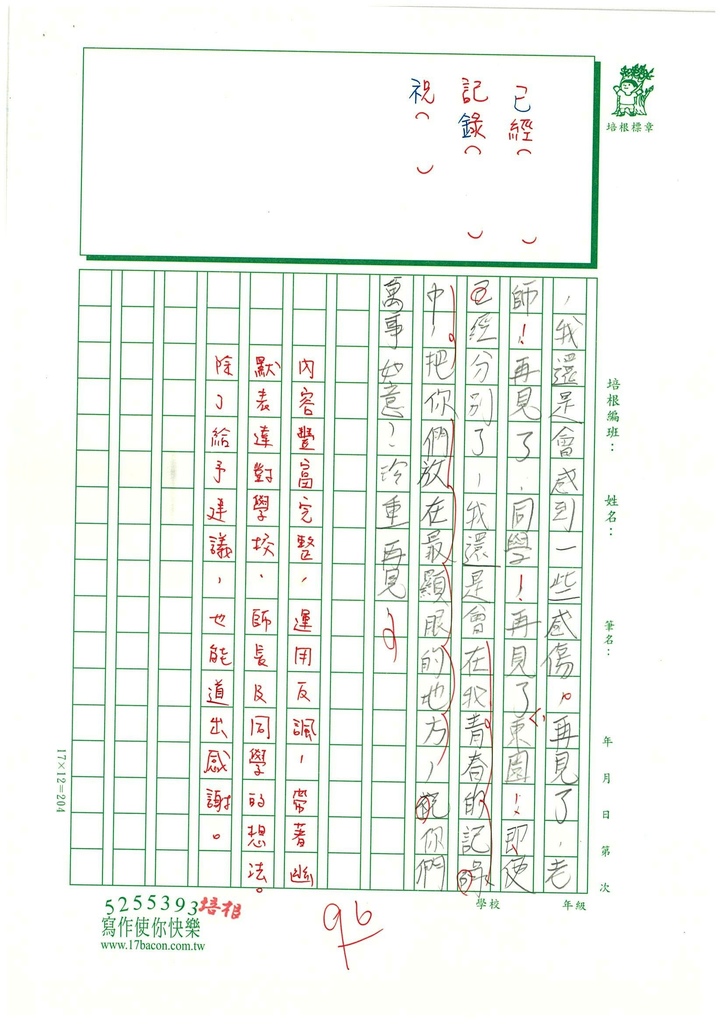 已經（　）
記錄（　）
祝（　）
培根標章
培根編班：　姓名：　筆名：　年　月　日　第　次
，我還是會感到一些感傷。再見了，老
師！再見了，同學！再見了，東園！即使
已經分別了，我還是會在我青春的記錄
中，把你們放在最顯眼的地方，祝你們
萬事如意！珍重再見！
內容豐富完整，運用反諷，帶著幽
默表達對學校、師長及同學的想法。
除了給予建議，也能道出感謝。
17×12=204
學校　年級
5255393培根
寫作使你快樂
www.17bacon.com.tw
96